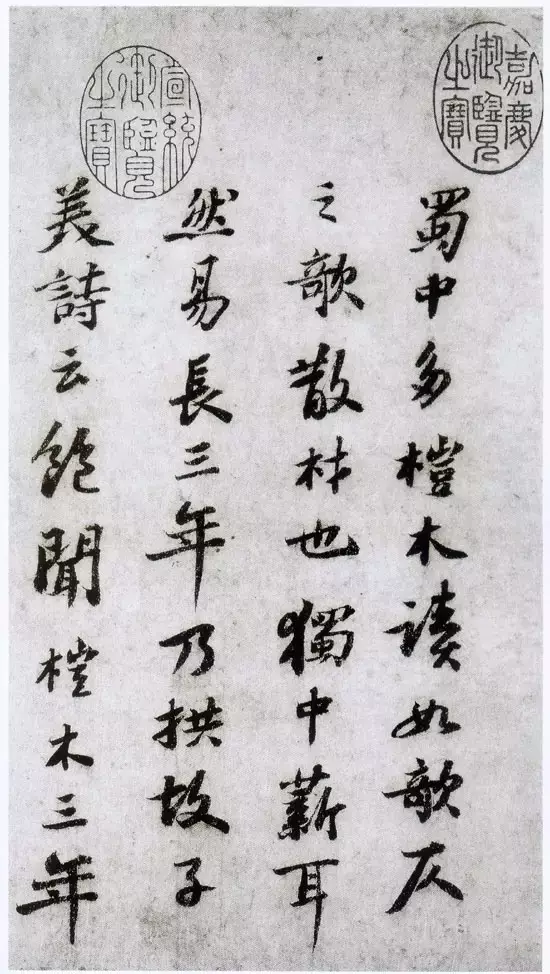 嘉慶
御覽
之寶
宣統
御覽
之寶
蜀中多榿木讀如欹仄
之欹散材也獨中薪耳
然易長三年乃拱故子
美詩云飽聞榿木三年